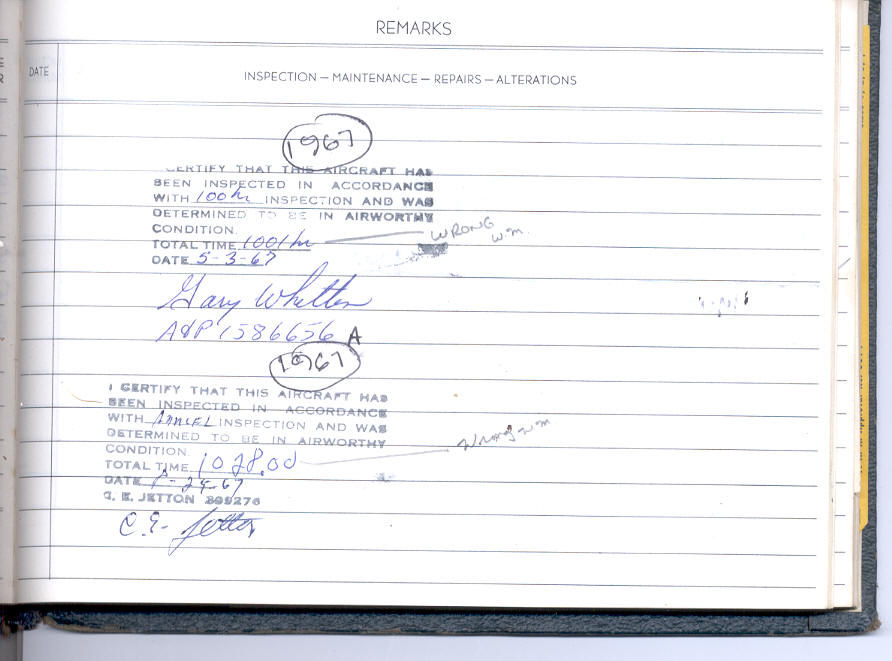 REMARKS
DATE
INSPECTION — MAINTENANCE — REPAIRS — ALTERATIONS
1967
CERTIFY THAT THIS AIRCRAFT HAS
BEEN INSPECTED IN ACCORDANCE
WITH 100 hr INSPECTION AND WAS
DETERMINED TO BE IN AIRWORTHY
CONDITION.
TOTAL TIME 1001 hr
WRONG
w.m.
DATE 5-3-67
Gary Whitten
A&P 1586656 A
1967
I CERTIFY THAT THIS AIRCRAFT HAS
BEEN INSPECTED IN ACCORDANCE
WITH ANNUEL INSPECTION AND WAS
DETERMINED TO BE IN AIRWORTHY
CONDITION.
TOTAL TIME 1028.00
Wrong wm
DATE -24-67
C. E. JETTON 309276
C.E. Jetton